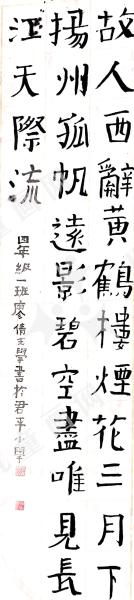 故人西辭黃鶴樓煙花三月下
揚州孤帆遠影碧空盡唯見長
江天際流
四年級一班廖倩玄學書於君平小學